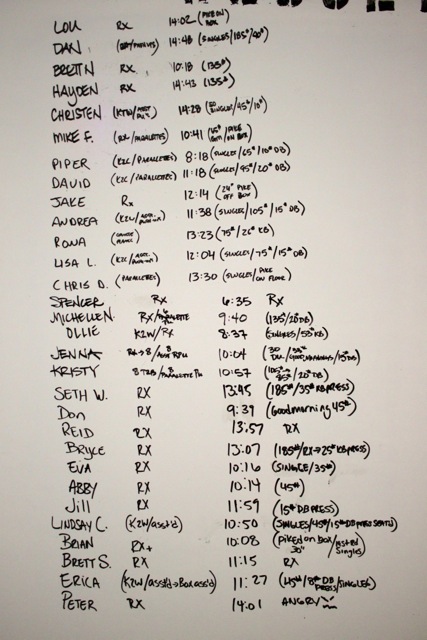 LOU RX 14:02 (PIKE ON BOX)
DAN 14:48 (SINGLES/185#/90#)
BRETT N RX 10:18 (135#)
HAYDEN RX 14:43 (135#)
CHRISTEN 14:28 (50 SINGLES/45#/10#)
MIKE F. (RX/PARALLETTES) 10:41
PIPER (K2C/PARALLETTES) 8:18 (SINGLES/65#/10# DB)
DAVID (K2C/PARALLETTES) 11:18 (SINGLES/95#/20# DB)
JAKE Rx 12:14 (24" PIKE OFF BOX)
ANDREA 11:38 (SINGLES/105#/15# DB)
RONA 13:23 (75#/26# KB)
LISA L. 12:04 (SINGLES/75#/15# DB)
CHRIS D. (PARALLETTES) 13:30 (SINGLES/PIKE ON FLOOR)
SPENCER RX 6:35 RX
MICHELLE N. 9:40 (135/20# DB)
OLLIE K2W/RX 8:37
JENNA 10:04
KRISTY 10:57
SETH W. RX 13:45 (185#/35# KB PRESS)
Don RX 9:39 (Goodmorning 45#)
REID RX 13:57 RX
Bryce RX 13:07 (185#/RX→25# KB PRESS)
EVA RX 10:16 (SINGLE/35#)
ABBY RX 10:14 (45#)
Jill RX 11:59 (15# DB PRESS)
LINDSAY C. (K2W/asst'd) 10:50
Brian RX+ 10:08 (piked on box 30"/asst'd Singles)
Brett S. RX 11:15 RX
ERICA (K2W/asst'd→Box asst'd) 11:27 (45#/8# DB PRESS/SINGLES)
PETER RX 14:01 ANGRY